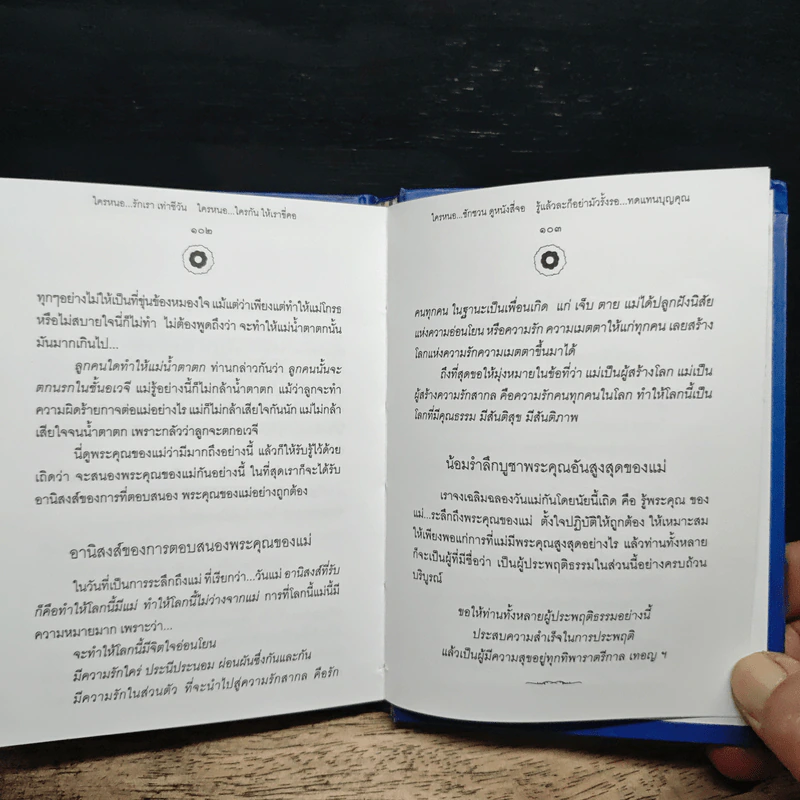 ใครหนอ...รักเรา เท่าชีวัน   ใครหนอ...ใครกัน ให้เราขี่คอ
๑๐๒
ทุกๆอย่างไม่ให้เป็นที่ขุ่นข้องหมองใจ แม้แต่ว่าเพียงแต่ทำให้แม่โกรธ
หรือไม่สบายใจนี่ก็ไม่ทำ ไม่ต้องพูดถึงว่า จะทำให้แม่น้ำตาตกนั้น
มันมากเกินไป...
ลูกคนใดทำให้แม่น้ำตาตก ท่านกล่าวกันว่า ลูกคนนั้นจะ
ตกนรกในชั้นอเวจี แม่รู้อย่างนี้ก็ไม่กล้าน้ำตาตก แม้ว่าลูกจะทำ
ความผิดร้ายกาจต่อแม่อย่างไร แม่ก็ไม่กล้าเสียใจกันนัก แม่ไม่กล้า
เสียใจจนน้ำตาตก เพราะกลัวว่าลูกจะตกอเวจี
นี่ดูพระคุณของแม่ว่ามีมากถึงอย่างนี้ แล้วก็ให้รับรู้ไว้ด้วย
เถิดว่า จะสนองพระคุณของแม่กันอย่างนี้ ในที่สุดเราก็จะได้รับ
อานิสงส์ของการที่ตอบสนอง พระคุณของแม่อย่างถูกต้อง
อานิสงส์ของการตอบสนองพระคุณของแม่
ในวันที่เป็นการระลึกถึงแม่ ที่เรียกว่า...วันแม่ อานิสงส์ที่รับ
ก็คือทำให้โลกนี้มีแม่ ทำให้โลกนี้ไม่ว่างจากแม่ การที่โลกนี้แม่นี้มี
ความหมายมาก เพราะว่า...
จะทำให้โลกนี้มีจิตใจอ่อนโยน
มีความรักใคร่ ประนีประนอม ผ่อนผันซึ่งกันและกัน
มีความรักในส่วนตัว ที่จะนำไปสู่ความรักสากล คือรัก
ใครหนอ...ชักชวน ดูหนังสี่จอ   รู้แล้วละก็อย่ามัวรั้งรอ...ทดแทนบุญคุณ
๑๐๓
คนทุกคน ในฐานะเป็นเพื่อนเกิด แก่ เจ็บ ตาย แม่ได้ปลูกฝังนิสัย
แห่งความอ่อนโยน หรือความรัก ความเมตตาให้แก่ทุกคน เลยสร้าง
โลกแห่งความรักความเมตตาขึ้นมาได้
ถึงที่สุดขอให้มุ่งหมายในข้อที่ว่า แม่เป็นผู้สร้างโลก แม่เป็น
ผู้สร้างความรักสากล คือความรักคนทุกคนในโลก ทำให้โลกนี้เป็น
โลกที่มีคุณธรรม มีสันติสุข มีสันติภาพ
น้อมรำลึกบูชาพระคุณอันสูงสุดของแม่
เราจงเฉลิมฉลองวันแม่กันโดยนัยนี้เถิด คือ รู้พระคุณ ของ
แม่...ระลึกถึงพระคุณของแม่ ตั้งใจปฏิบัติให้ถูกต้อง ให้เหมาะสม
ให้เพียงพอแก่การที่แม่มีพระคุณสูงสุดอย่างไร แล้วท่านทั้งหลาย
ก็จะเป็นผู้ที่มีชื่อว่า เป็นผู้ประพฤติธรรมในส่วนนี้อย่างครบถ้วน
บริบูรณ์
ขอให้ท่านทั้งหลายผู้ประพฤติธรรมอย่างนี้
ประสบความสำเร็จในการประพฤติ
แล้วเป็นผู้มีความสุขอยู่ทุกทิพาราตรีกาล เทอญ ฯ